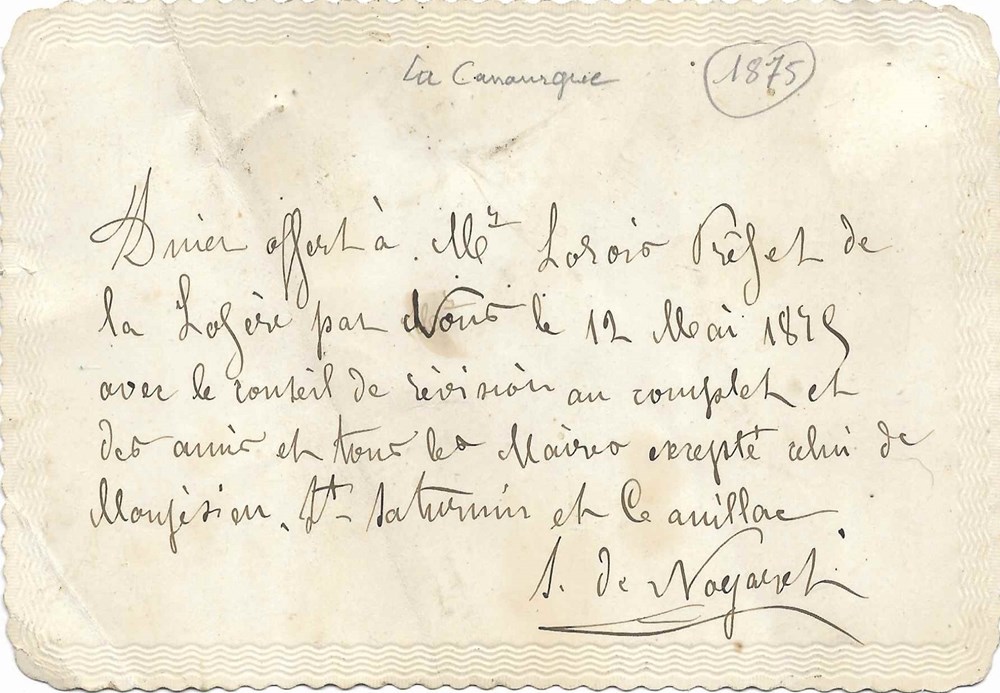 La Canourgue 1875
Diner offert à Mr Lorois Préfet de
la Lozère par Nous le 12 Mai 1875
avec le conseil de révision au complet et
des amis et tous les Maires excepté celui de
Montjésieu, St Saturnin et Canillac.
S. de Nogaret